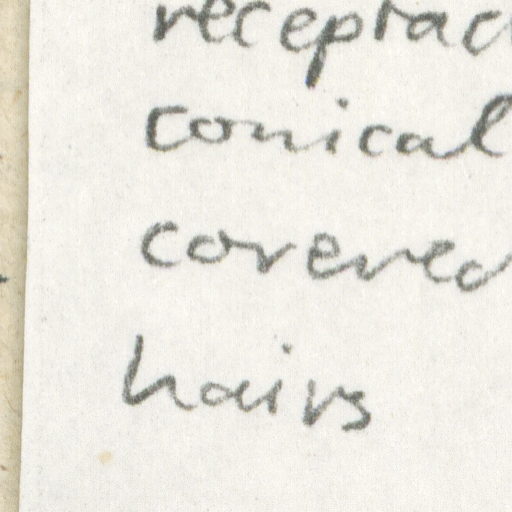 receptac
conical
covered
hairs